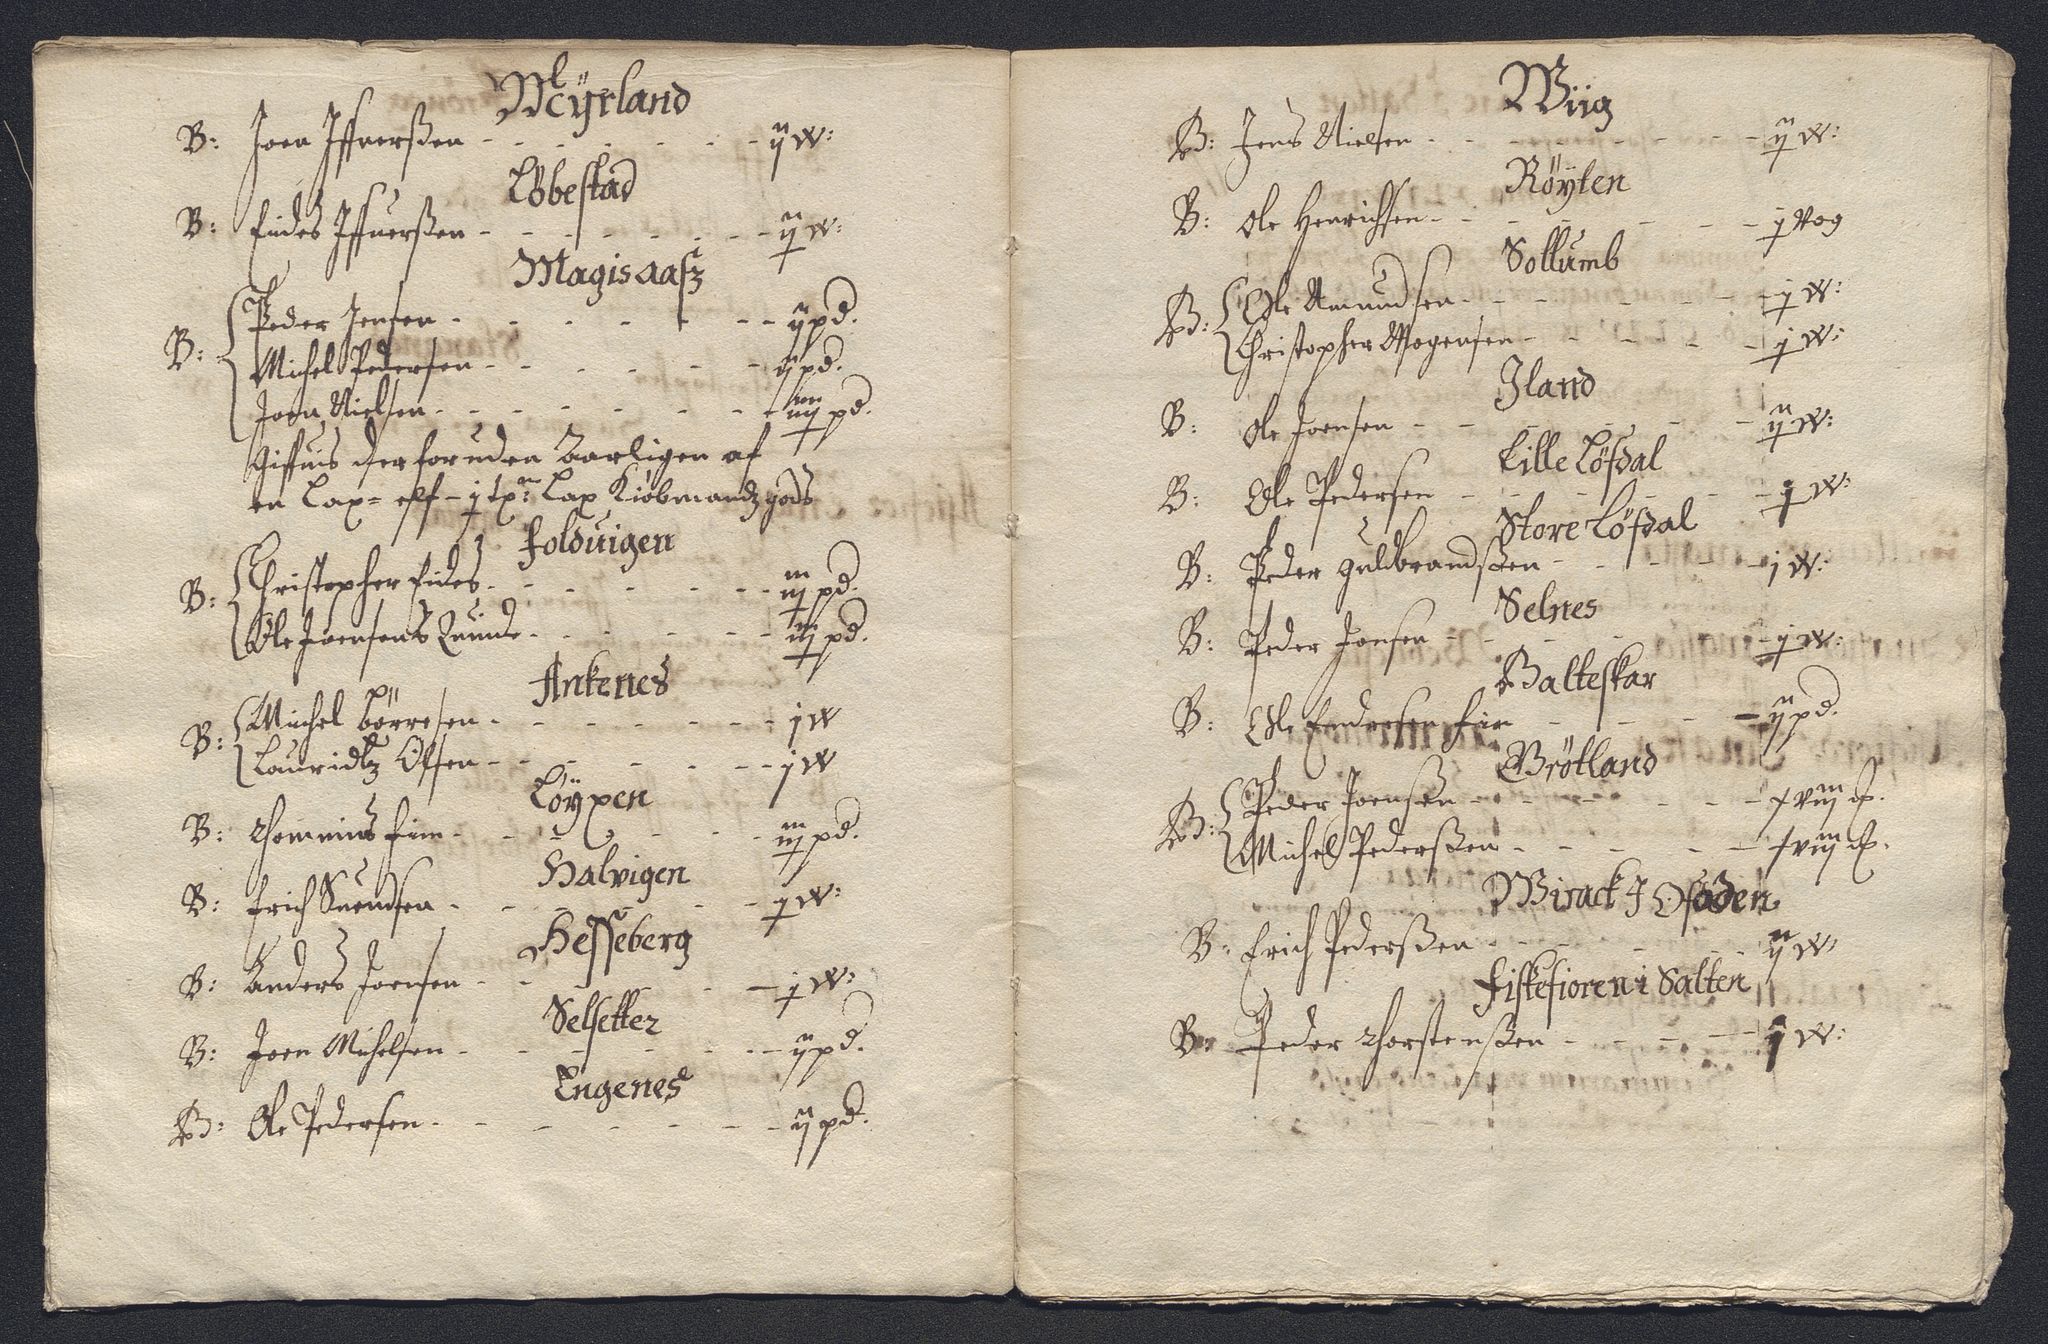 Mÿrland
B: Joen Iffuerßen - - - - - - - ij w:
Löbestad
B: Findes Iffuerßen - - - - - - - ij w:
Magisaasz
B: Peder Jensen - - - - - - - ij pd.
Michel Pedersen - - - - - - ij pd.
Joen Nielsen - - - - - - - iiij pd.
Giffuis der foruden Aarligen af
en Lax= elf - j tx: Lax Kiöbmandz gods
Folduigen
B: Christopher Findes - - - - - - iij pd.
Ole Joensens Quinde - - - - - - iij pd.
Ankenes
B: Michel börresen - - - - - - - j w
Lauridtz Olsen - - - - - - - j w
Löÿpen
B: Thommis Fin - - - - - - - iij pd.
Halvigen
B: Erich Suendsen - - - - - - - j w:
Hesseberg
B: Anders Joensen - - - - - - - j w:
Selsetter
B: Joen Michelsen - - - - - - - ij pd.
Engenes
B: Ole Pedersen - - - - - - - ij pd.
Wiig
B: Jens Nielsen - - - - - - - ij w:
Röÿten
B: Ole Henrichsen - - - - - - - j vog
Sollumb
B: Ole Amundsen - - - - - - - j w:
Christopher Mogensen - - - - - j w:
Jland
B: Ole Joensen - - - - - - - ij w:
Lille Löfdal
B: Ole Pedersen - - - - - - - j w:
Store Löfdal
B: Peder Guldbrandßen - - - - - j w:
Selnes
B: Peder Jonsen - - - - - - - j w:
Balteskar
B: Ole Endresen Fin - - - - ij pd.
Grötland
B: Peder Joensen - - - - - - - xviij
Michel Pederßen - - - - - - xviij
Wirack J Ofoden
B: Erich Pederßen - - - - - - ij w
Fiskefioren i Salten
B: Peder Thorstenßen - - - - - j w: